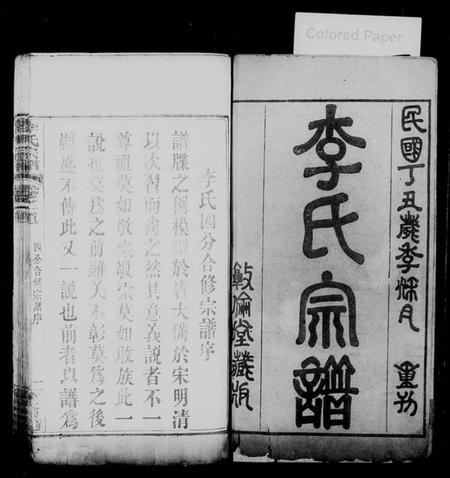 Colored Paper
民國丁丑歲季秋月 重刊
李氏宗譜
敦倫堂藏版
李氏四分合修宗譜序
譜牒之例模型於唐大備於宋明清
以次習而尚之然其意義說者不一
尊祖莫如敬宗敬宗莫如收族此一
說也莫為之前雖美不彰莫為之後
雖盛不傳此又一說也前者以譜為
李氏宗譜
四分合修宗譜序
一